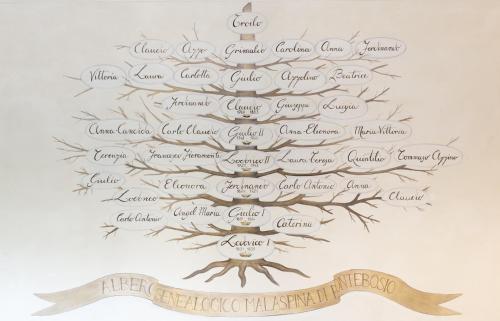 Troilo
Claucio Azzo Grimalco Carolina Anna Feroinando
Vittoria Laura Carlotta Giulio Azzolino Beatrice
Feroinando Claucio Giuseppa Luigia
Anna Canoida Carlo Claucio Giulio II Anna Eleonora Maria Vittoria
Terenzia Francesco Fieramonti Lodovico II Laura Teresa Quintilio Tommaso Azzino
Giulio Eleonora Feroinanoo Carlo Antonio Anna
Lodovico Claudio
Carlo Antonio Angel Maria Giulio I Caterina
Lodovico I
ALBERO GENEALOGICO MALASPINA DI PONTEBOSIO